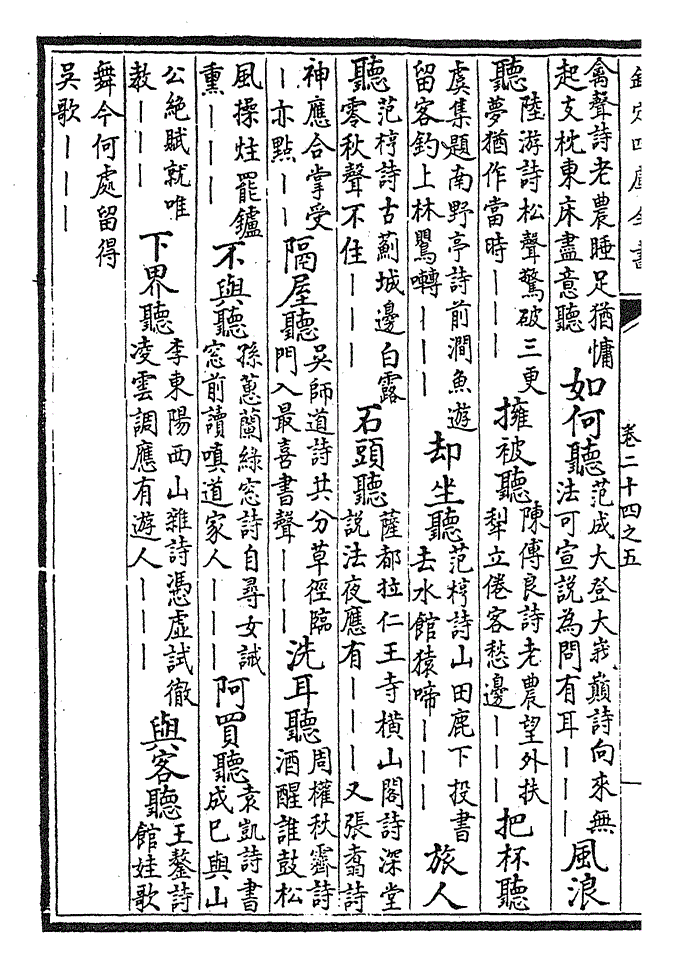 欽定四庫全書 卷二十四之五
禽聲詩老農睡足猶慵起支枕東床盡意聽 如何聽 范成大登大峩巔詩向來無法可宣說為問有耳丨丨丨 風浪
聽 陸游詩松聲驚破三更夢猶作當時丨丨丨 擁被聽 陳傅良詩老農望外扶犂立倦客愁邊丨丨丨 把杯聽
虞集題南野亭詩前澗魚遊留客釣上林鸎囀丨丨丨 却坐聽 范梈詩山田鹿下投書去水館猿啼丨丨丨 旅人
聽 范梈詩古薊城邊白露零秋聲不住丨丨丨 石頭聽 薩都拉仁王寺橫山閣詩深堂說法夜應有丨丨丨又張翥詩
神應合掌受丨亦點丨丨 隔屋聽 吳師道詩共分草徑臨門入最喜書聲丨丨丨 洗耳聽 周權秋霽詩酒醒誰鼓松
風操炷罷鑪熏丨丨丨 不與聽 孫蕙蘭綠窓詩自尋女誡窓前讀嗔道家人丨丨丨 阿買聽 袁凱詩書成已與山
公絶賦就唯教丨丨丨 下界聽 李東陽西山雜詩憑虛試徹凌雲調應有遊人丨丨丨 與客聽 王鏊詩館娃歌
舞今何處留得吳歌丨丨丨